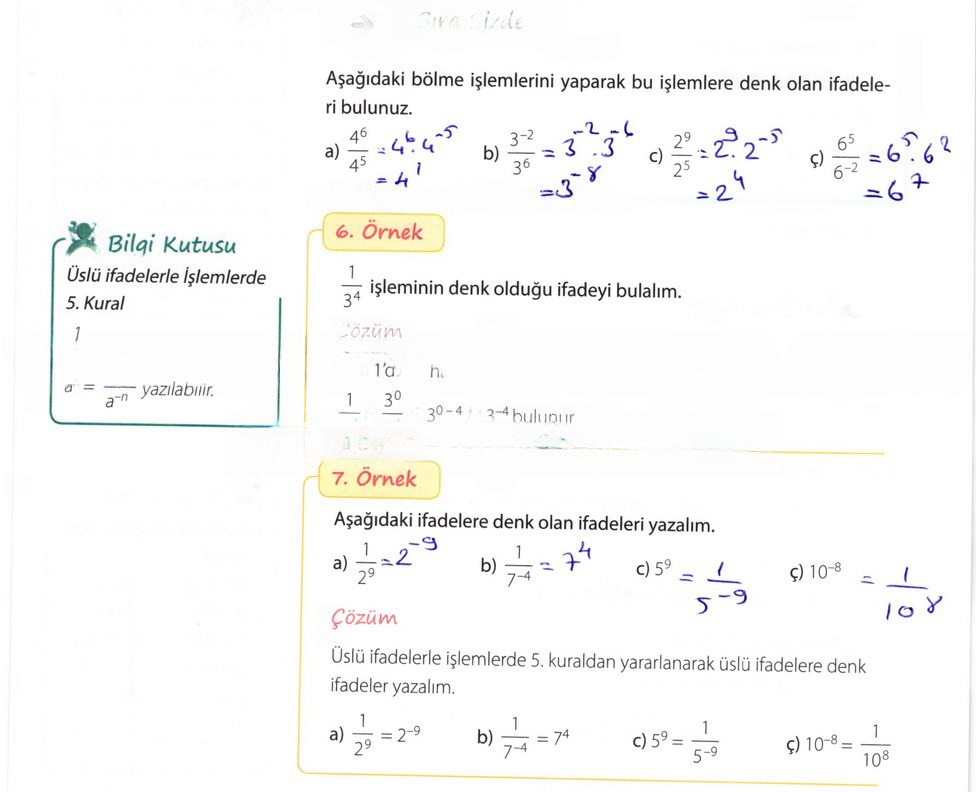 Sıra Sizde
Aşağıdaki bölme işlemlerini yaparak bu işlemlere denk olan ifadele-
ri bulunuz.
a) 4⁶/4⁵ = 4⁶.4⁻⁵ b) 3⁻²/3⁶ = 3⁻².3⁻⁶ c) 2⁹/2⁵ = 2⁹.2⁻⁵ ç) 6⁵/6⁻² = 6⁵.6²
= 4¹ =3⁻⁸ = 2⁴ =6⁷
Bilgi Kutusu
Üslü ifadelerle İşlemlerde
5. Kural
1
a = a⁻ⁿ yazılabilir.
6. Örnek
1/3⁴ işleminin denk olduğu ifadeyi bulalım.
Çözüm
1'a
1 3⁰ 3⁰⁻⁴ 3⁻⁴ bulunur
7. Örnek
Aşağıdaki ifadelere denk olan ifadeleri yazalım.
a) 1/2⁹ = 2⁻⁹ b) 1/7⁻⁴ = 7⁴ c) 5⁹ = 1/5⁻⁹ ç) 10⁻⁸ = 1/10⁸
Çözüm
Üslü ifadelerle işlemlerde 5. kuraldan yararlanarak üslü ifadelere denk
ifadeler yazalım.
a) 1/2⁹ = 2⁻⁹ b) 1/7⁻⁴ = 7⁴ c) 5⁹ = 1/5⁻⁹ ç) 10⁻⁸ = 1/10⁸